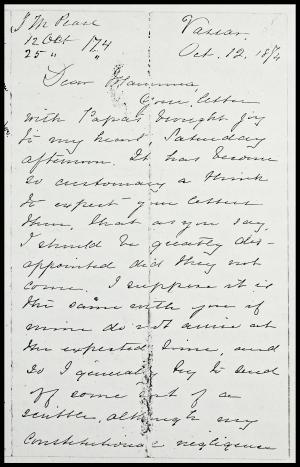 J M Pease
12 Oct 1874
25 " "
Vassar,
Oct. 12, 1874
Dear Mamma
Your letter
with Papa's brought joy
to my heart, Saturday
afternoon. It has become
so customary a think
to expect your letters
then, that as you say,
I should be greatly dis-
appointed did they not
come. I suppose it is
the same with you if
mine do not arrive at
the expected time, and
so I generally try to send
off some sort of a
scribble, although my
constitutional negligence